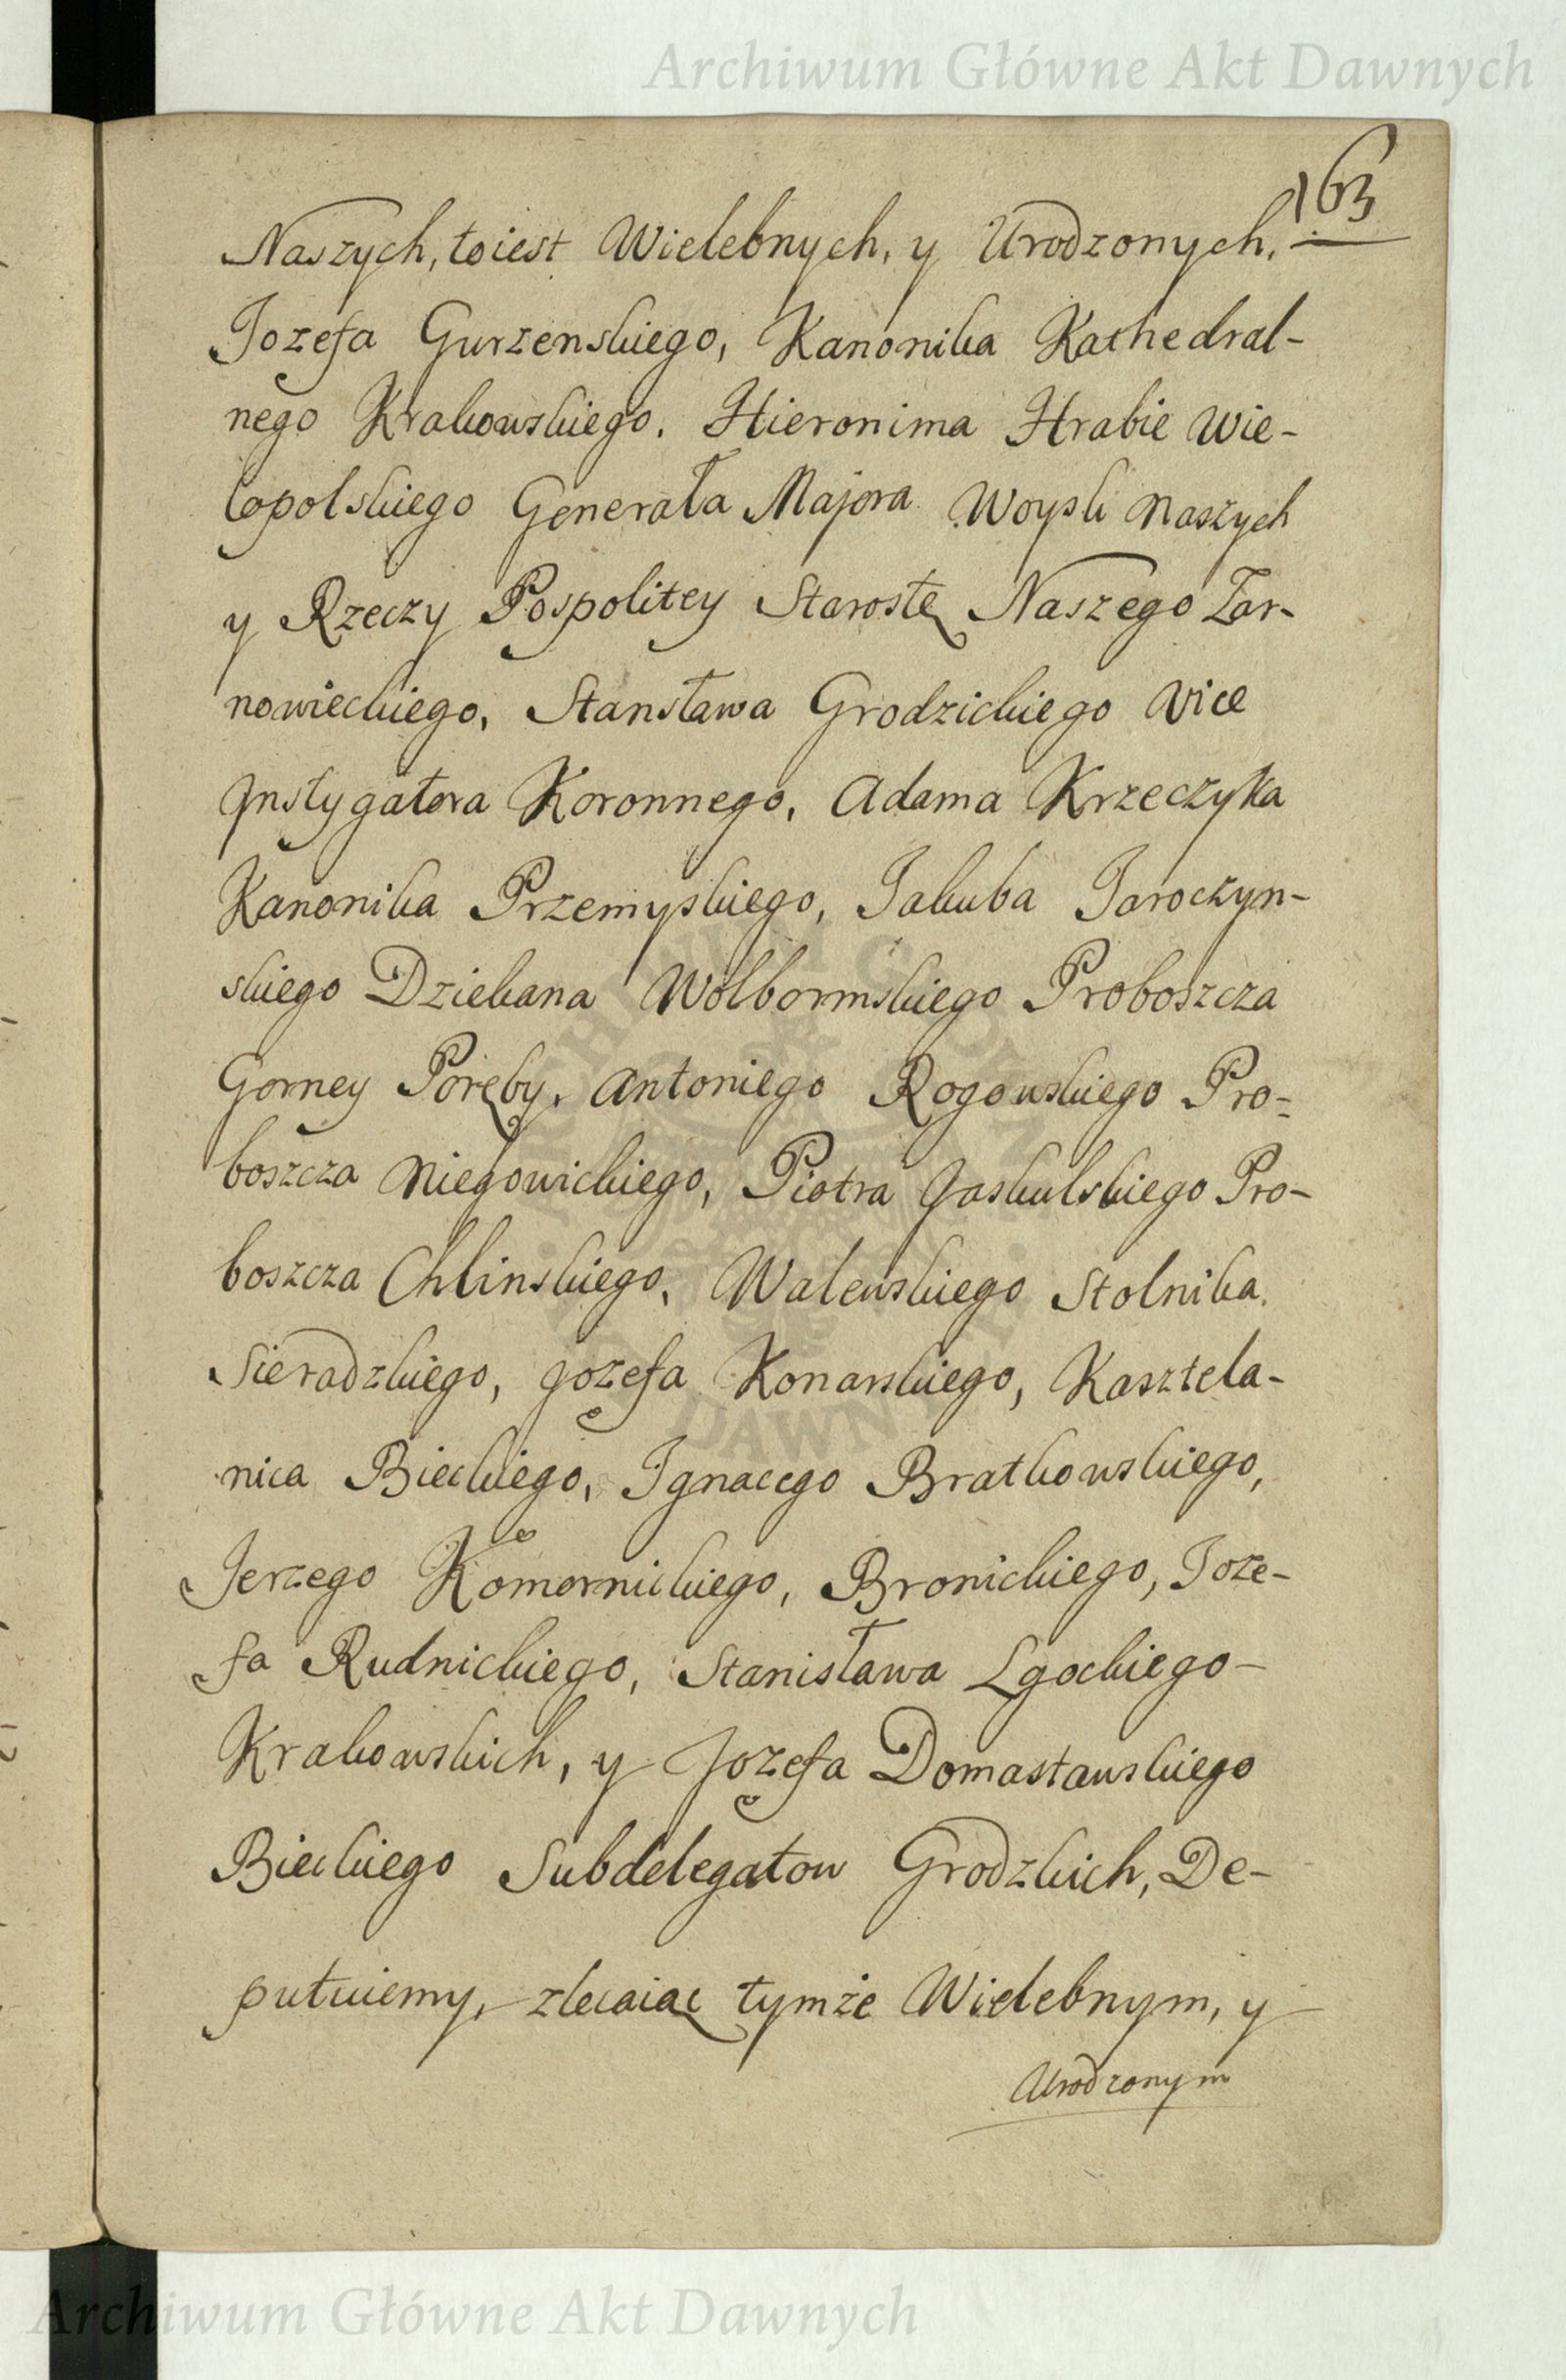 Archiwum Główne Akt Dawnych
163
Naszych, toiest Wielebnych, y Urodzonych,
Jozefa Gurzenskiego, Kanonika Kathedral-
nego Krakowskiego. Hieronima Hrabie Wie-
lopolskiego Generała Majora Woysk Naszych
y Rzeczy Pospolitey Starostę Naszego Żar-
nowieckiego, Stansława Grodzickiego Vice
Jnstygatora Koronnego, Adama Krzeczyka
Kanonika Przemyskiego, Jakuba Jaroczyn-
skiego Dziekana Wolbormskiego Proboszcza
Gorney Poręby, Antoniego Rogowskiego Pro=
boszcza Niegowickiego, Piotra Jaskulskiego Pro-
boszcza Chlinskiego, Walewskiego Stolnika
Sieradzkiego, Jozefa Konarskiego, Kasztela-
nica Bieckiego, Ignacego Bratkowskiego,
Jerzego Komornickiego, Bronickiego, Joze-
fa Rudnickiego, Stanisława Lgockiego-
Krakowskich, y Jozefa Domastawskiego
Bieckiego Subdelegatow Grodzkich, De-
putuiemy, zlecaiąc tymże Wielebnym, y
Urodzonym
Archiwum Główne Akt Dawnych